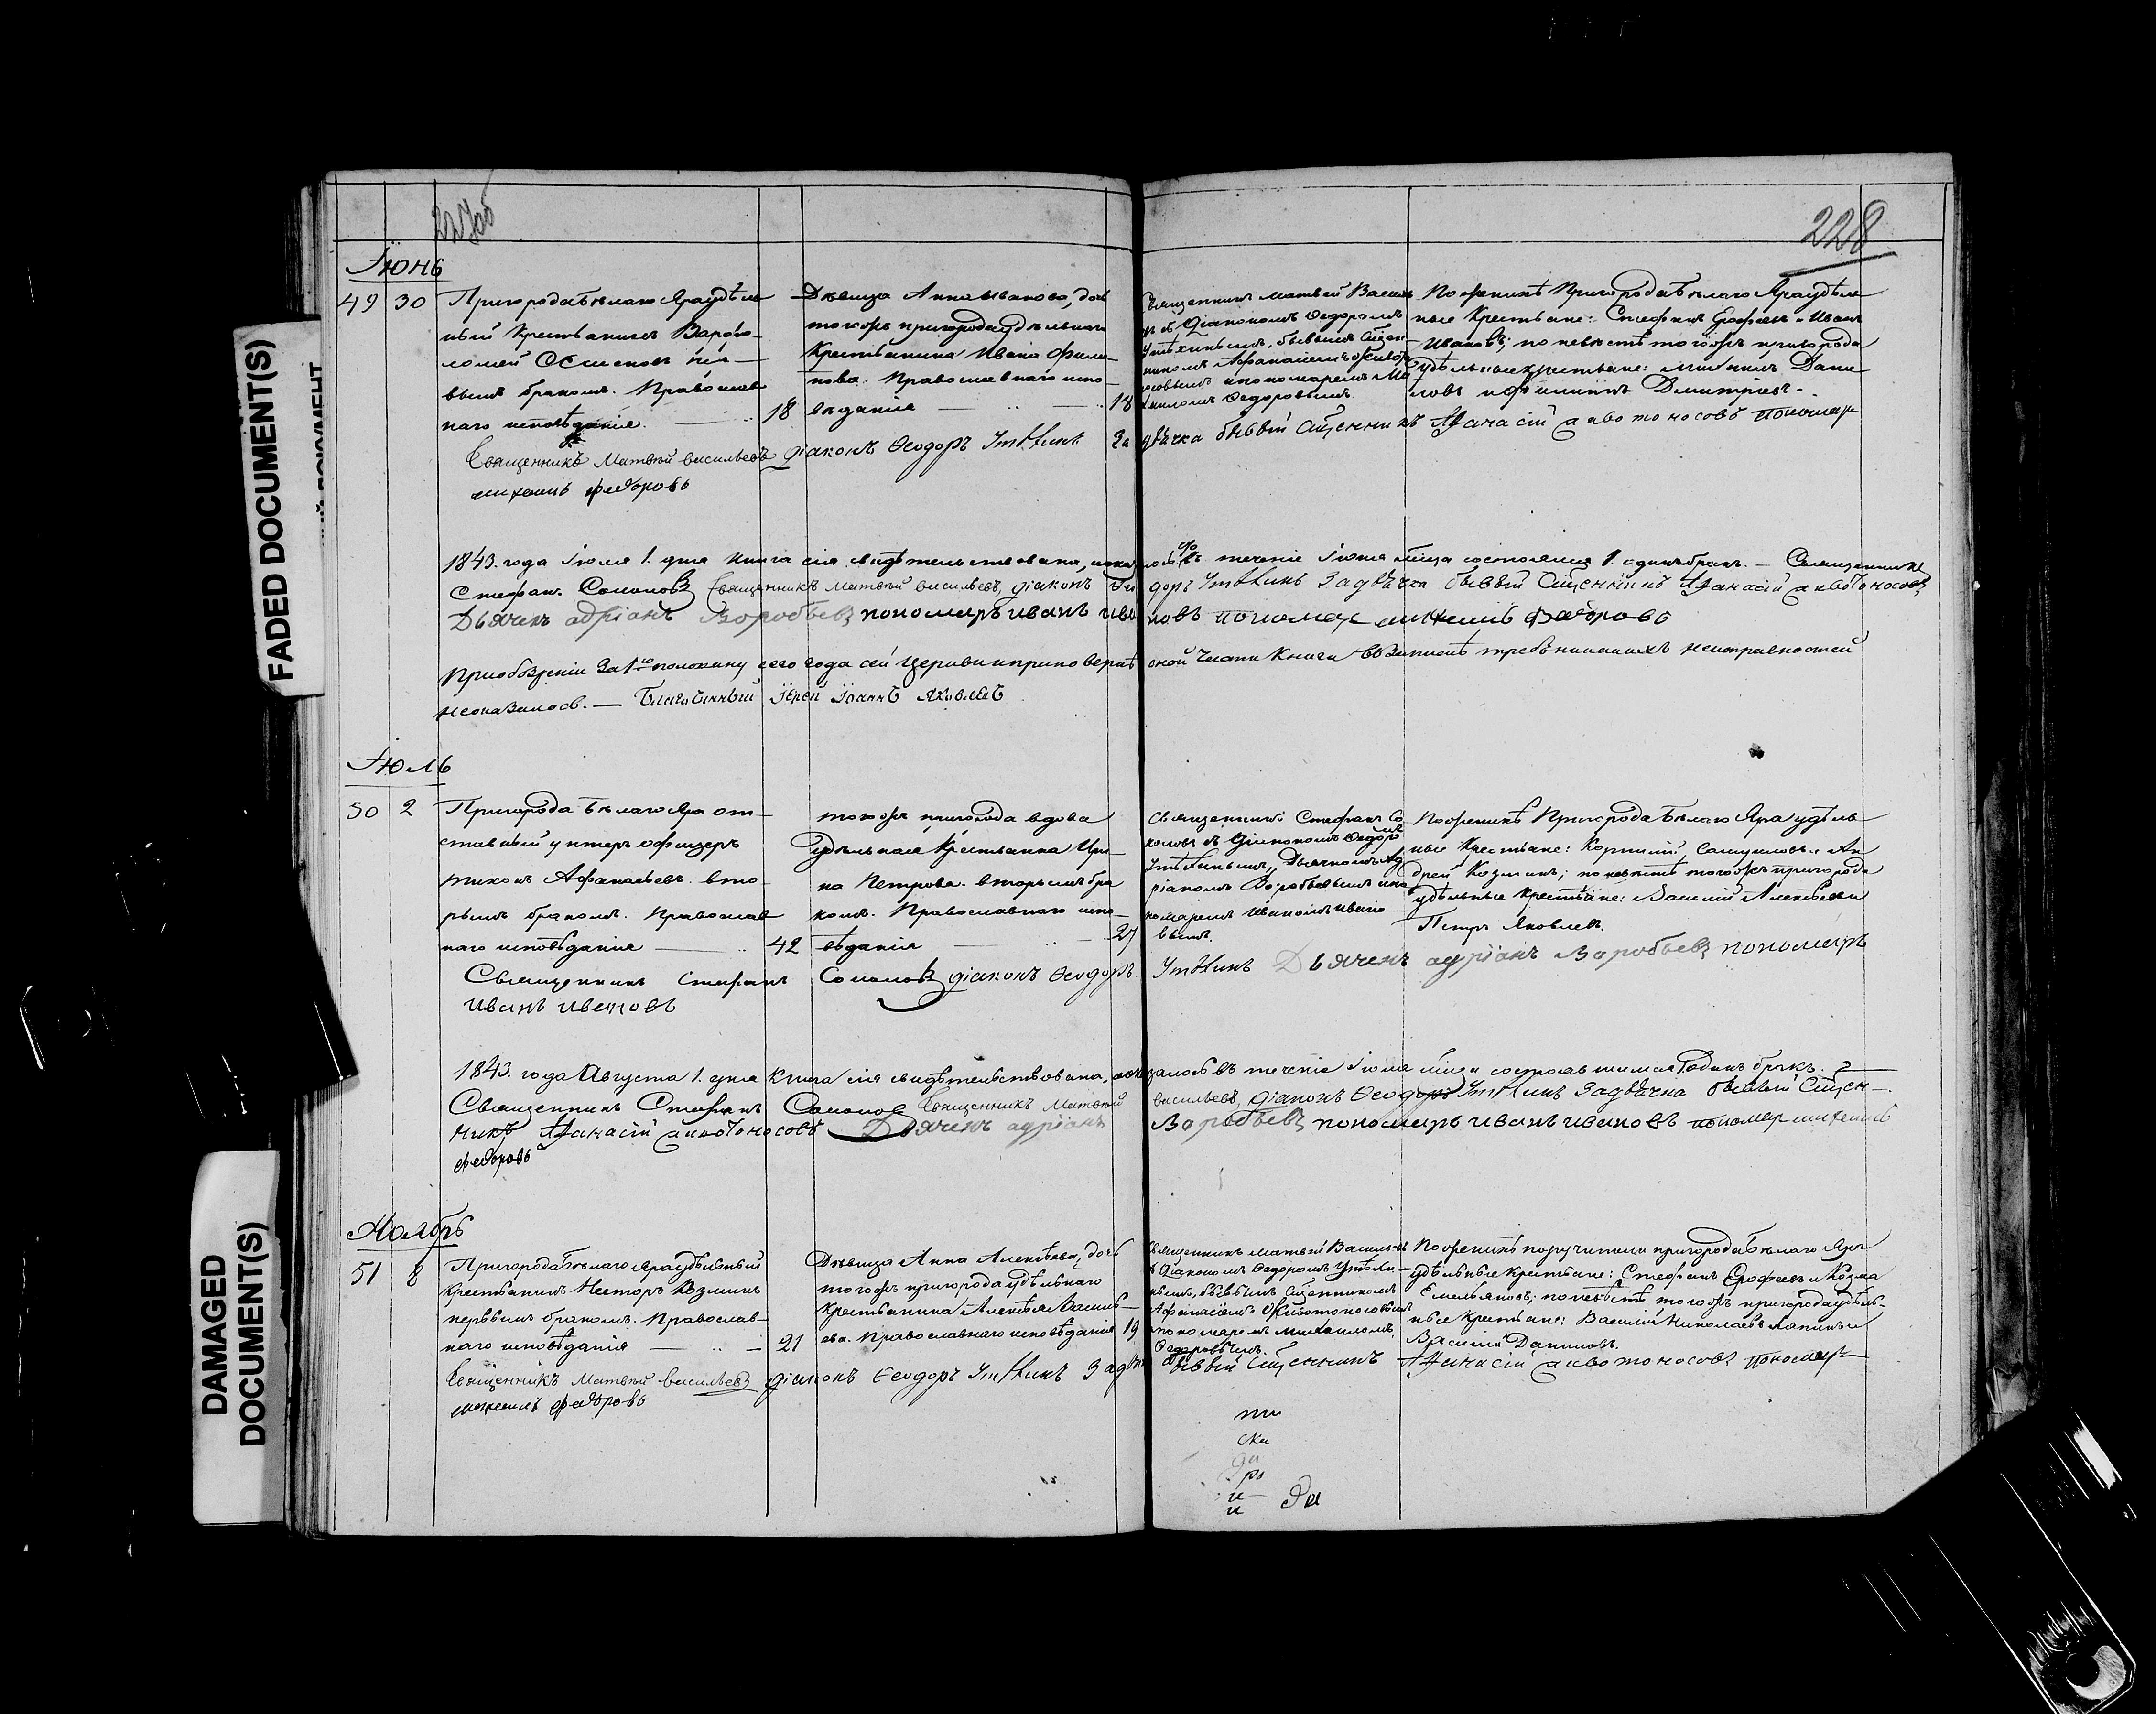 FADED DOCUMENT(S)
DAMAGED
DOCUMENT(S)
227об
228
Іюнь
49 30
Пригорода Бѣлаго Яра удѣль
ный Крестьянинъ Варѳо-
ломей Осиповъ пер-
вымъ бракомъ. Православ
наго исповѣданія. 18
Дѣвица Анна Иванова, дочь
тогожъ пригорода удѣльнаго
Крестьянина Ивана Фили-
пова. Православнаго испо-
вѣданія 18
Священникъ Матвей Василь
въ съ Діакономъ Ѳедоромъ
Утѣхинымъ, бывшимъ Сщен-
никомъ Афанасіемъ Живот
осовымъ и пономаремъ Ми
хаиломъ Ѳедоровымъ
По женихѣ Пригорода Бѣлаго Яра удѣль
ные Крестьяне: Стефанъ Ерофеевъ и Иванъ
Ивановъ; по невѣстѣ тогожъ пригорода
удѣльные крестьяне: Михаилъ Дани
ловъ и Филиппъ Дмитріевъ.
Священникъ Матвѣй васильевъ діаконъ Ѳеодоръ Утѣхинъ За дьячка бывый Сщенникъ Афанасій Животоносовъ пономар
михаилъ федоровъ
1843. года Іюля 1. дня Книга сія свидѣтельствована, и оказалось въ теченіе Іюня мѣсяца состоялся 1. одинъ бракъ. — Священникъ
Стефанъ Соколовъ Священникъ Матвѣй васильевъ, діаконъ Ѳеодоръ Утѣхинъ За дьячка бывый Сщенникъ Афанасій Животоносовъ
Дьячекъ адріанъ Воробьевъ пономаръ иванъ ивановъ пономар михаилъ федоровъ
При обозрѣніи за 1ю половину сего года сей Церкви и при повѣркѣ оной Части Книги въ записи требоисправленіяхъ неисправностей
не оказалось. — Благочинный Іерей Іоаннъ Яковлевъ
Іюль
50 2
Пригорода Бѣлаго Яра от-
ставный унтеръ офицеръ
Тихонъ Афанасьевъ. вто-
рымъ бракомъ. Православ
наго исповѣданія 42
тогожъ пригорода вдова
Удѣльная Крестьянка Ири-
на Петрова. вторымъ бра
комъ. Православнаго испо-
вѣданія 27
Священникъ Стефанъ Со
коловъ съ Діакономъ Ѳедоромъ
Утѣхинымъ, Дьячкомъ Ад
ріаномъ Воробьевымъ и по
номаремъ Иваномъ Ивано
вымъ.
По женихѣ Пригорода Бѣлаго Яра удѣль
ные Крестьяне: Корнилій Самуиловъ и Ан
дрей Козминъ; по невѣстѣ тогожъ пригорода
удѣльные крестьяне: Василій Алексѣевъ и
Петръ Яковлевъ.
Священникъ Стефанъ Соколовъ діаконъ Ѳеодоръ Утѣхинъ Дьячекъ адріанъ Воробьевъ пономаръ
иванъ ивановъ
1843. года Августа 1. дня Книга сія свидѣтельствована, и оказалось въ теченіе Іюля мѣсяца состоявшимся 1 одинъ бракъ.
Священникъ Стефанъ Соколовъ Священникъ Матвѣй васильевъ, діаконъ Ѳеодоръ Утѣхинъ За дьячка бывый Сщен-
никъ Афанасій Животоносовъ Дьячекъ адріанъ Воробьевъ пономаръ иванъ ивановъ пономар михаилъ
федоровъ
Ноябрь
51 8
Пригорода Бѣлаго Яра удѣльный
Крестьянинъ Несторъ Козминъ
первымъ бракомъ. Православ-
наго исповѣданія 21
Дѣвица Анна Алексѣева, дочь
тогожъ пригорода удѣльнаго
Крестьянина Алексѣя Василь-
ева. Православнаго исповѣданія 19
Священникъ Матвѣй Васильевъ
съ Діакономъ Ѳедоромъ Утѣхи-
нымъ, бывымъ Сщенникомъ
Афанасіемъ Животоносовымъ
и пономаремъ Михаиломъ
Ѳедоровымъ.
По женихѣ поручители пригорода Бѣлаго Яра
удѣльные крестьяне: Стефанъ Ерофеевъ и Козма
Емельяновъ; по невѣстѣ тогожъ пригорода удѣль-
ные Крестьяне: Василій Николаевъ Лапинъ и
Василій Даниловъ.
Священникъ Матвѣй васильевъ діаконъ Ѳеодоръ Утѣхинъ За дьячка бывый Сщенникъ Афанасій Животоносовъ пономар
михаилъ федоровъ
ска
ро
и
и